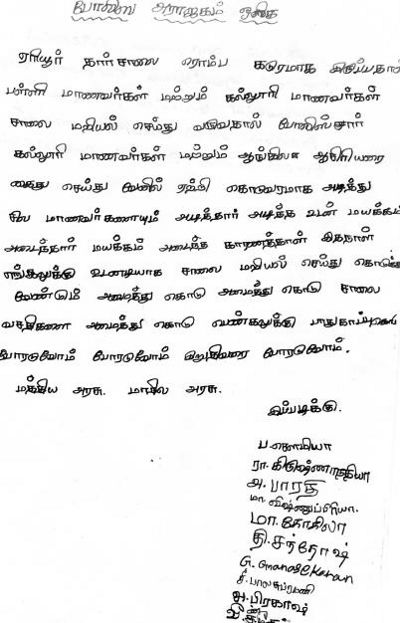 போலிஸ் அராஜகம் ஒழிக
ஏரியூர் தார்சாலை ரொம்ப கடுரமாக இருப்பதால்
பள்ளி மாணவர்கள் மற்றும் கல்லூரி மாணவர்கள்
சாலை மறியல் செய்து வருவதால் போலிஸ்சார்
கல்லூரி மாணவர்கள் மற்றும் ஆங்கில ஆசிரியரை
கைது செய்து வேனில் ஏற்றி கொடுரமாக அடித்து
சில மாணவர்களையும் அடித்தார் அடித்த உடன் மயக்கம்
அடைந்தார் மயக்கம் அடைந்த காரணத்தான் இதநால்
எங்கலுக்கு உடனடியாக சாலை மறியல் செய்து
வேண்டும் அமைத்து கொடு அமைத்து கொடு சாலை
வசதிகளை அமைத்து கொடு பெண்கலுக்கு பாதுகாப்பு
போரடுவோம் போரடுவோம் இறுதிவரை போரடுவோம்.
மத்திய அரசு. மாநில அரசு.
இப்படிக்கு.
ப. சௌமியா
ரா. கிருஷ்ணாநந்தியா
அ. பாரதி
மா. விஷ்ணுப்ரியா.
மா. கோகிலா
தி. சந்தோஷ்
G. Gnanasekaran
சி. பாலசுப்ரமணி
அ. பிரகாஷ்